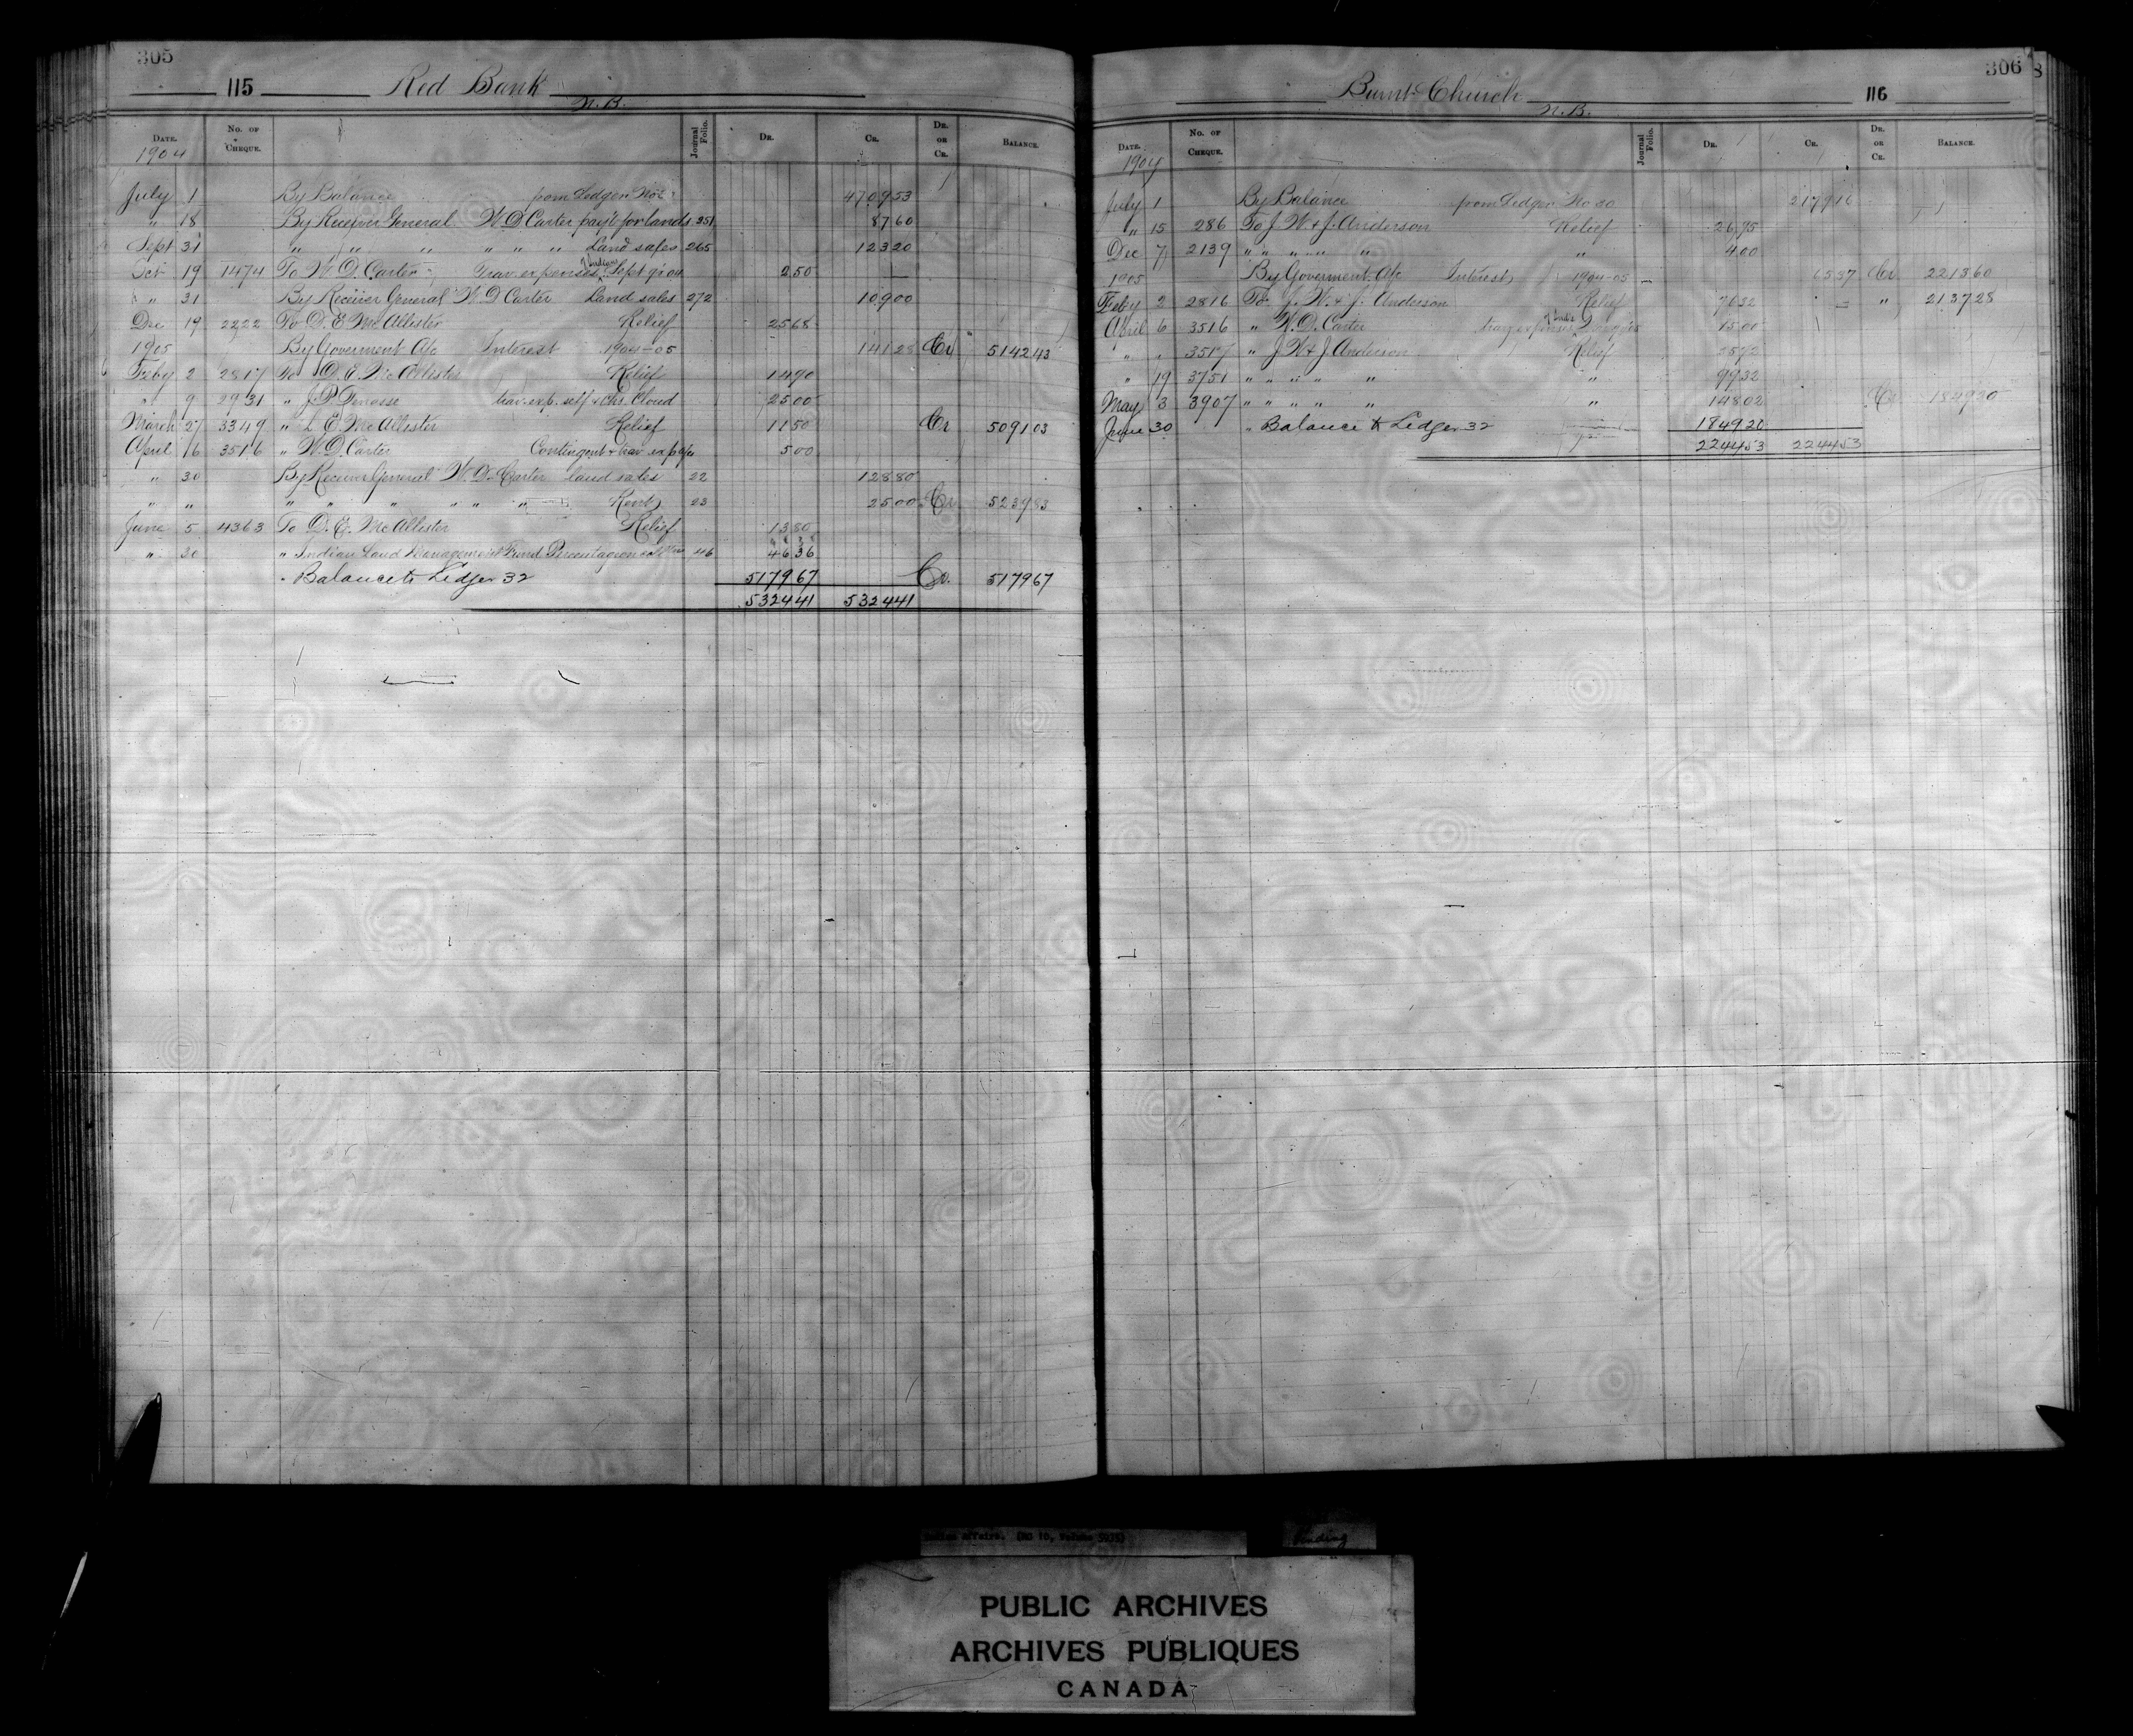 305
115 Red Bank
N.B.
DATE. No. OF CHEQUE. Journal Folio. DR. CR. DR. OR CR. BALANCE.
1904
July 1 By Balance from Ledger No 470953
" 18 By Receiver General W D Carter pay't for lands 251 8760
Sept 31 " " " " " " Land sales 265 12320
Oct 19 1474 To W. D. Carter Trav. expenses Sept qr 04 250
" 31 By Receiver General W. D Carter Land sales 272 10900
Dec 19 2222 To D. E McAllister Relief 2568
1905 By Goverment A/c Interest 1904-05 14128 Cr 514243
Feby 2 2817 To D. E. McAllister Relief 1490
" 9 2931 " J. P. trav. exp. self & Chs. Cloud 2500
March 27 3349 " D. E. McAllister Relief 1150 Cr 509103
April 6 3516 " W. D. Carter Contingent & trav. exp 500
" 30 By Receiver General W. D. Carter land sales 22 12880
" " " " " " " " Rent 23 2500 Cr 523983
June 5 4363 To D. E. McAllister Relief 1380
" 30 " Indian Land Management Fund Percentage on 46 4636
" Balance to Ledger 32 517967 Cr. 517967
532441 532441
306
Burnt Church 116
N.B.
DATE. No. OF CHEQUE. Journal Folio. DR. CR. DR. OR CR. BALANCE.
1904
July 1 By Balance from Ledger No 30 217916
" 15 286 To J. W. & J. Anderson Relief 2695
Dec 7 2139 " " " " " " 400
1905 By Goverment A/c Interest 1904-05 6537 Cr 221360
Feby 2 2816 To J. W. & J. Anderson Relief 7632 " 213728
April 6 3516 " W. D. Carter trav expenses 1500
" " 3517 " J. W & J. Anderson Relief
" 19 3751 " " " " " " 9932
May 3 3907 " " " " " " 14802 Cr 184920
June 30 " Balance to Ledger 32 184920
224453 224453
Affairs. (RG 10, Volume
PUBLIC ARCHIVES
ARCHIVES PUBLIQUES
CANADA